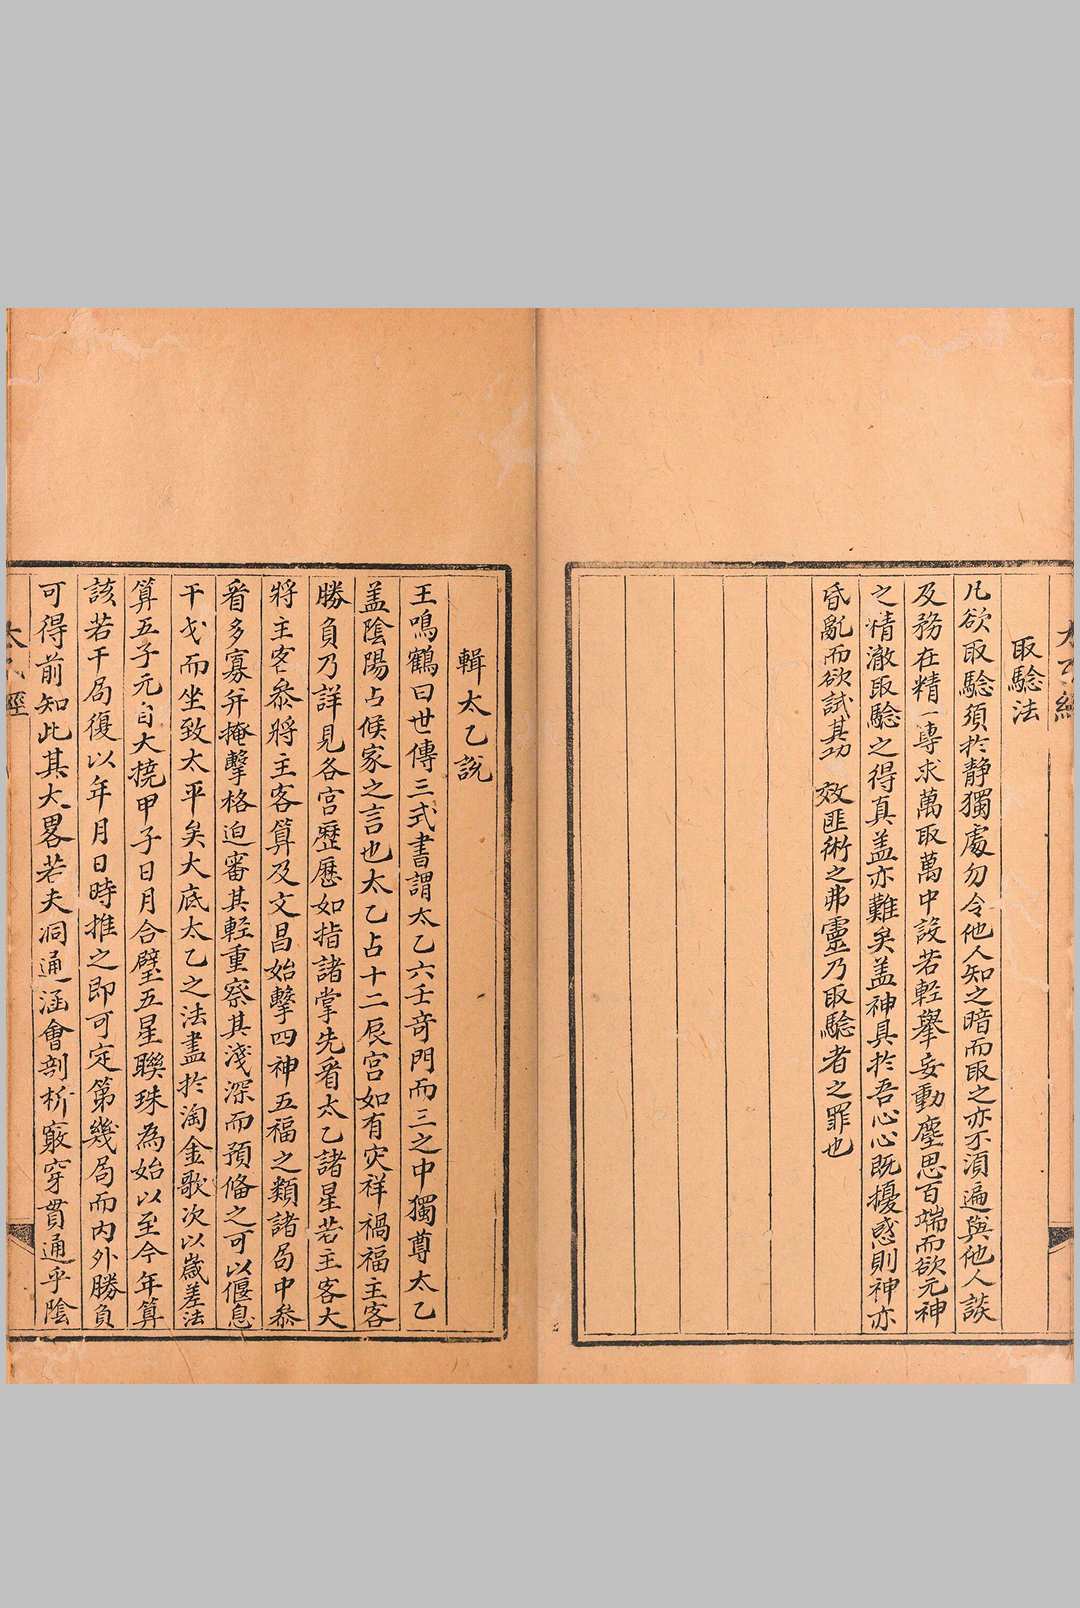 太乙經
取騐法
凡欲取騐須於静獨處勿令他人知之暗而取之亦不湏遍與他人談
及務在精一專求萬取萬中設若輕舉妄動塵思百端而欲元神
之精澈取騐之得真盖亦難矣盖神具於吾心心既擾惑則神亦
昏亂而欲試其功 效匪術之弗靈乃取騐者之罪也
輯太乙說
王鳴鶴曰世傳三式書謂太乙六壬竒門而三之中獨尊太乙
盖陰陽占候家之言也太乙占十二辰宫如有灾祥禍福主客
勝負乃詳見各宫歷歷如指諸掌先看太乙諸星若主客大
將主客叅將主客算及文昌始擊四神五福之類諸局中叅
看多寡并掩擊格迫審其輕重察其淺深而預俻之可以偃息
干戈而坐致太平矣大底太乙之法盡於淘金歌次以歲差法
算五子元自大撓甲子日月合璧五星聯珠為始以至今年算
該若干局復以年月日時推之即可定第幾局而内外勝負
可得前知此其大畧若夫洞通涵會剖析竅穿貫通乎陰
太乙經